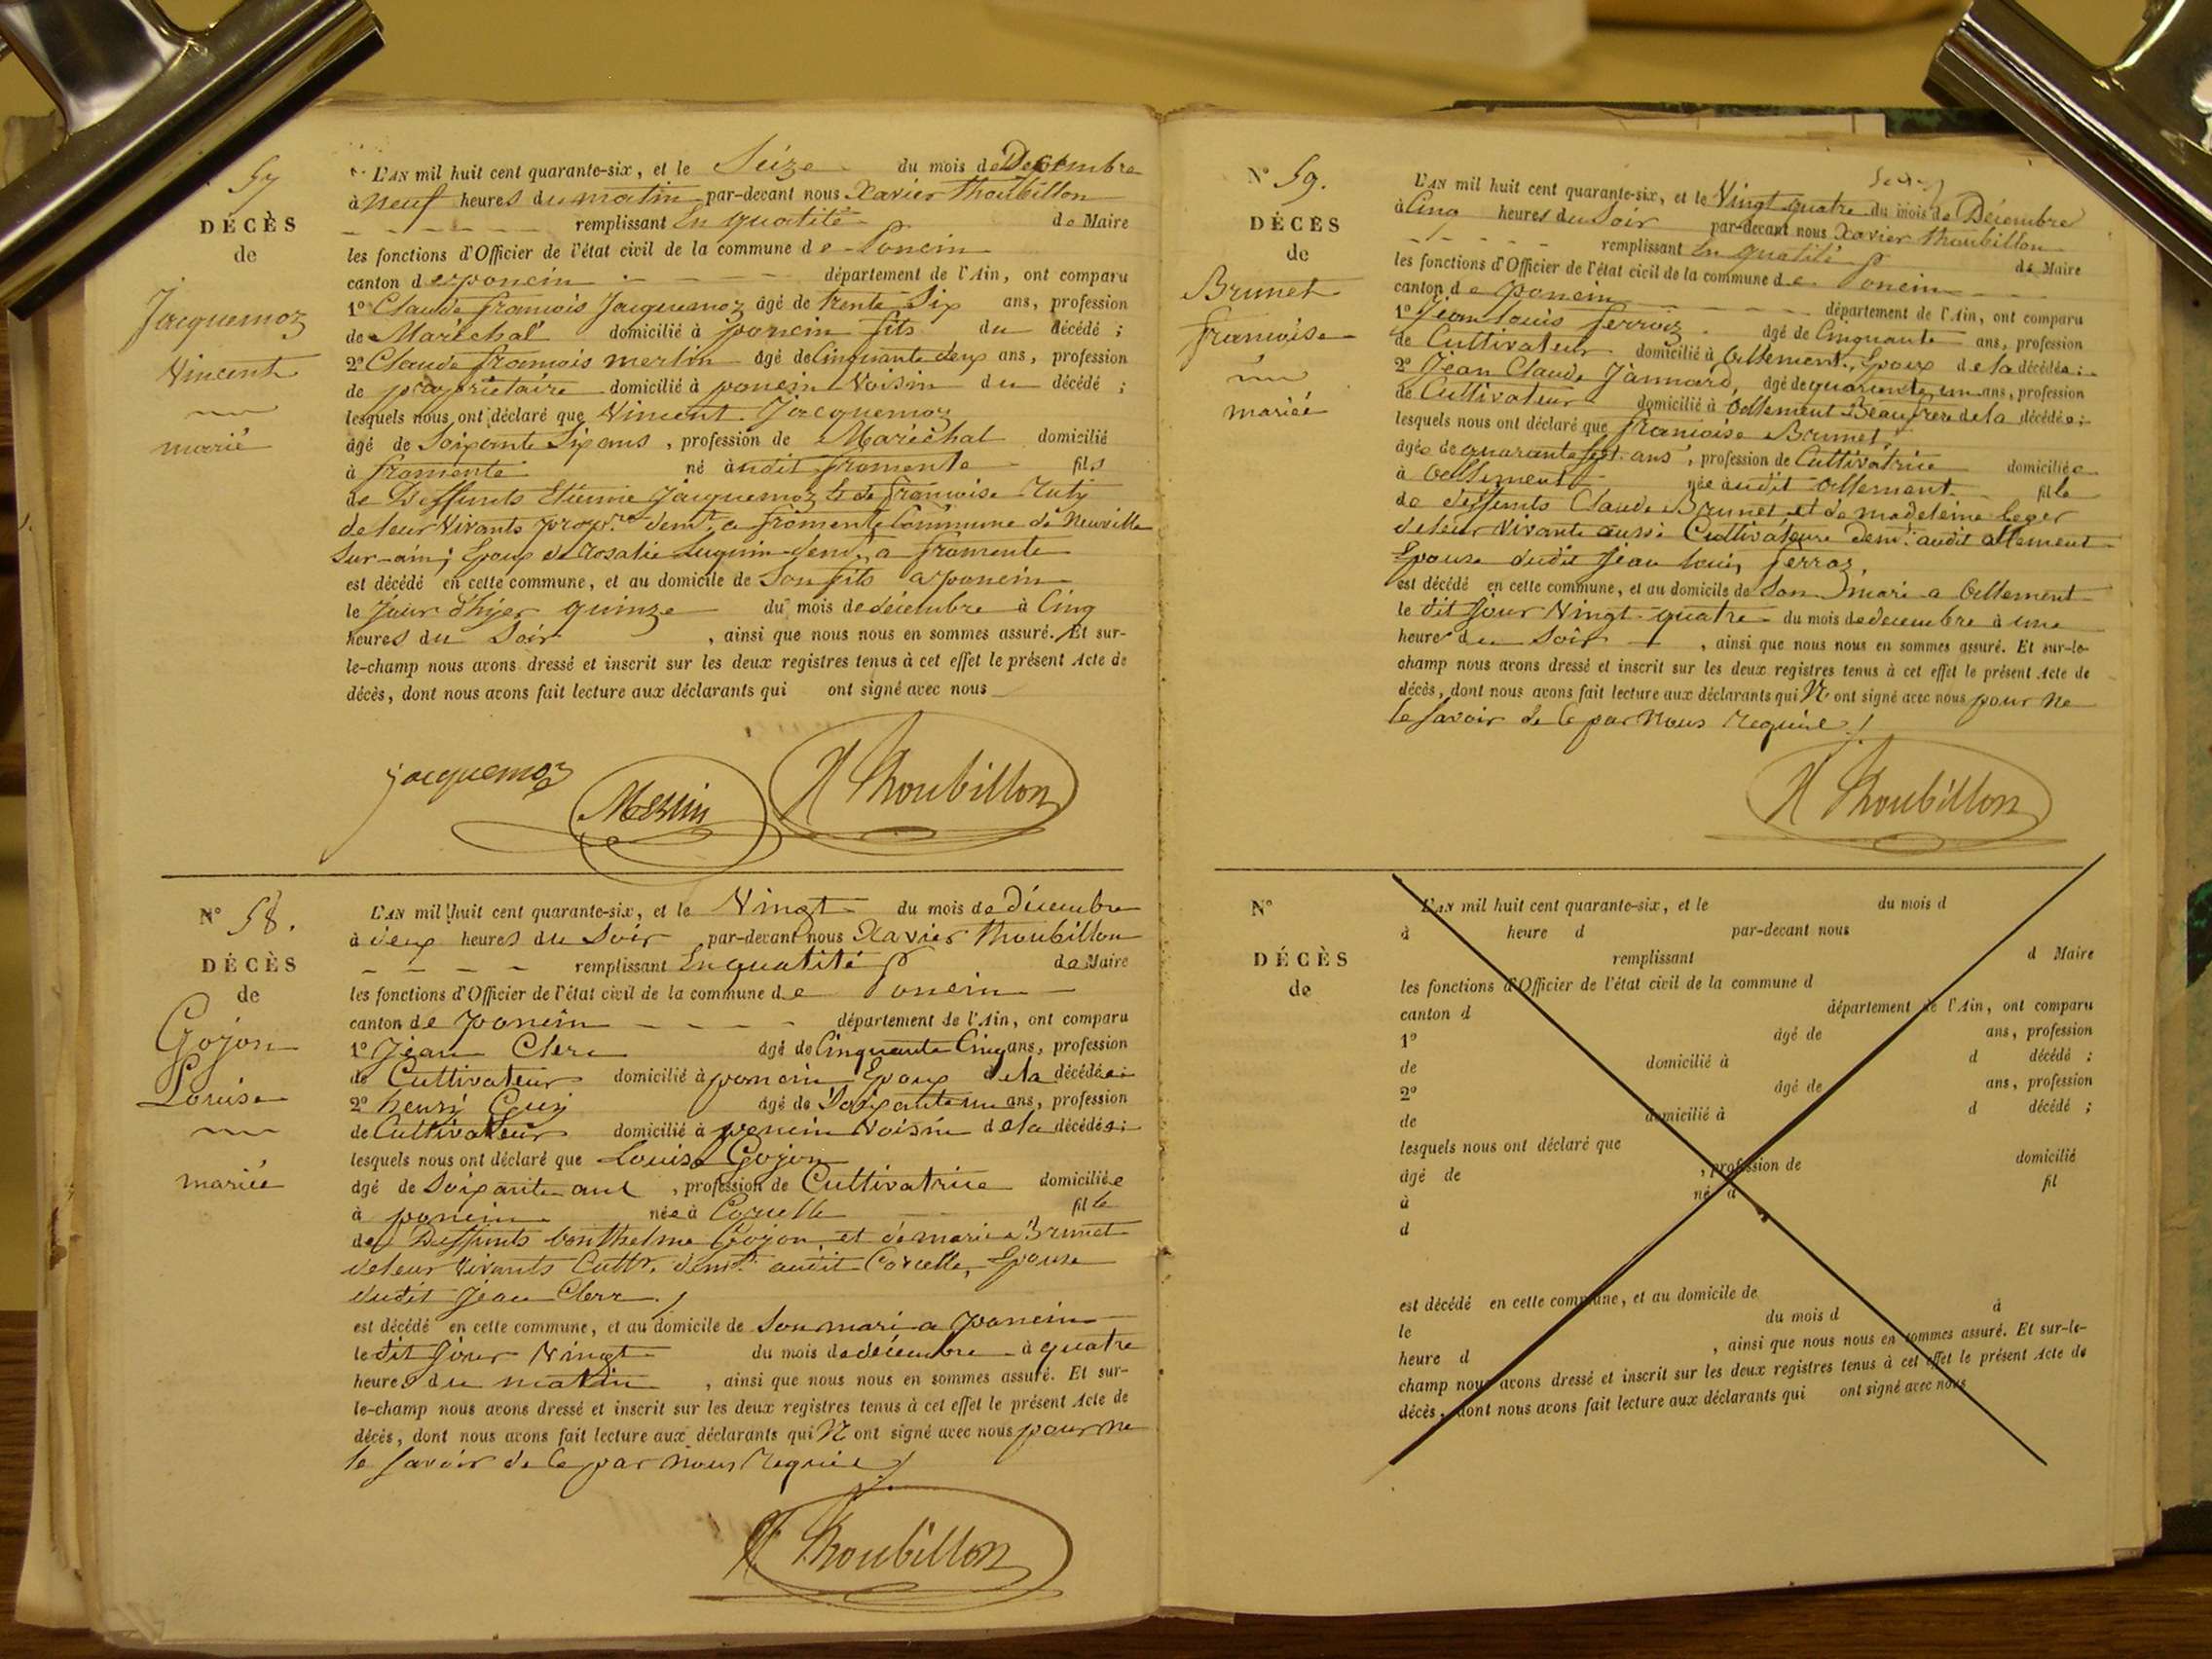 57
DÉCÈS
de
Jacquemoz
Vincent
marié
L'AN mil huit cent quarante-six, et le Seize du mois de Decembre
à neuf heures du matin par-devant nous Xavier Thoubillon
remplissant En qualité de Maire
les fonctions d'Officier de l'état civil de la commune de Poncin
canton de poncin département de l'Ain, ont comparu
1º Claude françois Jacquemoz âgé de trente Six ans, profession
de Maréchal domicilié à poncin fils du décédé ;
2º Claude françois merlin âgé de Cinquante deux ans, profession
de propriétaire domicilié à poncin Voisin du décédé ;
lesquels nous ont déclaré que Vincent Jacquemoz
âgé de Soixante Six ans, profession de Maréchal domicilié
à fromente né audit fromente fils
de Deffunts Etienne Jacquemoz & de françoise
de leur Vivants propres demt a fromente Commune de Neuville
Sur-ain ; Epoux de Rosalie Suguin demt a fromente
est décédé en cette commune, et au domicile de Son fils a poncin
le Jour d'hyer quinze du mois de décembre à Cinq
heures du Soir, ainsi que nous nous en sommes assuré. Et sur-
le-champ nous avons dressé et inscrit sur les deux registres tenus à cet effet le présent Acte de
décès, dont nous avons fait lecture aux déclarants qui ont signé avec nous
jacquemoz Merlin X Thoubillon
Nº 58.
DÉCÈS
de
Gojon
Louise
mariée
L'AN mil huit cent quarante-six, et le Vingt du mois de Décembre
à deux heures du Soir par-devant nous Xavier Thoubillon
remplissant En qualité de Maire
les fonctions d'Officier de l'état civil de la commune de Poncin
canton de poncin département de l'Ain, ont comparu
1º Jean Clerc âgé de Cinquante Cinq ans, profession
de Cultivateur domicilié à poncin Epoux de la décédée ;
2º henri Guy âgé de Soixante un ans, profession
de Cultivateur domicilié à poncin Voisin de la décédée ;
lesquels nous ont déclaré que Louise Gojon
âgé de Soixante ans, profession de Cultivatrice domiciliée
à poncin née à Corcelle fille
de Deffunts Gojon et de marie Brunet
de leur Vivants Cultrs demt audit Corcelle, Epouse
dudit Jean Clerc.
est décédé en cette commune, et au domicile de Son mari a poncin
le dit Jour Vingt du mois de décembre à quatre
heures du matin, ainsi que nous nous en sommes assuré. Et sur-
le-champ nous avons dressé et inscrit sur les deux registres tenus à cet effet le présent Acte de
décès, dont nous avons fait lecture aux déclarants qui N'ont signé avec nous pour ne
le Savoir de Ce par nous requis
X Thoubillon
Nº 59.
DÉCÈS
de
Brunet
françoise
mariée
L'AN mil huit cent quarante-six, et le Vingt quatre du mois de Décembre
à Cinq heures du Soir par-devant nous Xavier Thoubillon
remplissant En qualité de Maire
les fonctions d'Officier de l'état civil de la commune de Poncin
canton de poncin département de l'Ain, ont comparu
1º Jean Louis ferroz âgé de Cinquante ans, profession
de Cultivateur domicilié à Allement, Epoux de la décédée ;
2º Jean Claude Jannard, âgé de quarante un ans, profession
de Cultivateur domicilié à Allement Beaufrere de la décédée ;
lesquels nous ont déclaré que françoise Brunet,
âgée de quarante Sept ans, profession de Cultivatrice domiciliée
à Allement née audit Allement fille
de deffunts Claude Brunet et de madeleine Leger
de leur Vivants aussi Cultivateurs demt audit allement
Epouse dudit Jean Louis ferroz.
est décédé en cette commune, et au domicile de Son mari a Allement
le dit Jour Vingt quatre du mois de decembre à une
heure du Soir, ainsi que nous nous en sommes assuré. Et sur-le-
champ nous avons dressé et inscrit sur les deux registres tenus à cet effet le présent Acte de
décès, dont nous avons fait lecture aux déclarants qui N'ont signé avec nous pour Ne
le Savoir de Ce par Nous requis
X Thoubillon
Nº
DÉCÈS
de
L'AN mil huit cent quarante-six, et le du mois d
à heure d par-devant nous
remplissant d Maire
les fonctions d'Officier de l'état civil de la commune d
canton d département de l'Ain, ont comparu
1º âgé de ans, profession
de domicilié à d décédé ;
2º âgé de ans, profession
de domicilié à d décédé ;
lesquels nous ont déclaré que
âgé de , profession de domicilié
à né à fil
d
est décédé en cette commune, et au domicile de
le du mois d à
heure d , ainsi que nous nous en sommes assuré. Et sur-le-
champ nous avons dressé et inscrit sur les deux registres tenus à cet effet le présent Acte de
décès, dont nous avons fait lecture aux déclarants qui ont signé avec nous